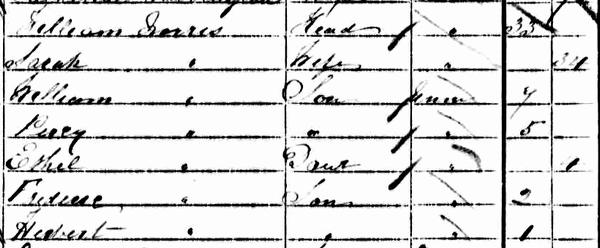 William Norris Head " 33
Sarah " Wife " 34
William " Son 7
Percy " " " 5
Ethel " Daur "
" Son " 2
Herbert " " " 1